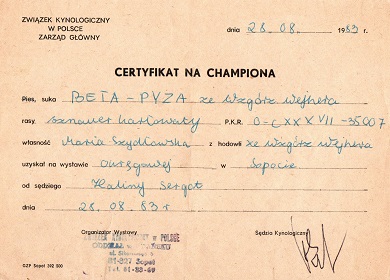 ZWIĄZEK KYNOLOGICZNY
W POLSCE
ZARZĄD GŁÓWNY
dnia 28.08. 1983
CERTYFIKAT NA CHAMPIONA
Pies, suka BETA-PYZA ze Wzgórz Wejhera
rasy sznaucer karłowaty P.K.R. O-CXXXVII-35007
własność Maria Szydłowska z hodowli ze Wzgórz Wejhera
uzyskał na wystawie Okręgowej w Sopocie
od sędziego Haliny Sergot
dnia 28.08.83 r
Organizator Wystawy Sędzia Kynologiczny
ZWIĄZEK KYNOLOGICZNY w POLSCE
81-837 Sopot
OZP Sopot